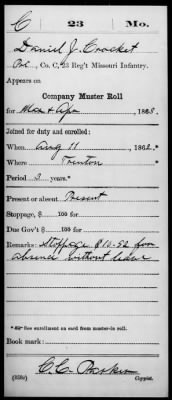 C 23 Mo.
Daniel J. Crocket
Pvt., Co. C, 23 Reg't Missouri Infantry.
Appears on
Company Muster Roll
for Mar & Apr, 1863.
Joined for duty and enrolled:
When Aug 11, 1862.*
Where Trenton
Period 3 years.*
Present or absent Present
Stoppage, $ 100 for
Due Gov't $ 100 for
Remarks: Stoppage $10.52 for
absence without leave
* See enrollment on card from muster-in roll.
Book mark:
(858c) C. C. Copyist.